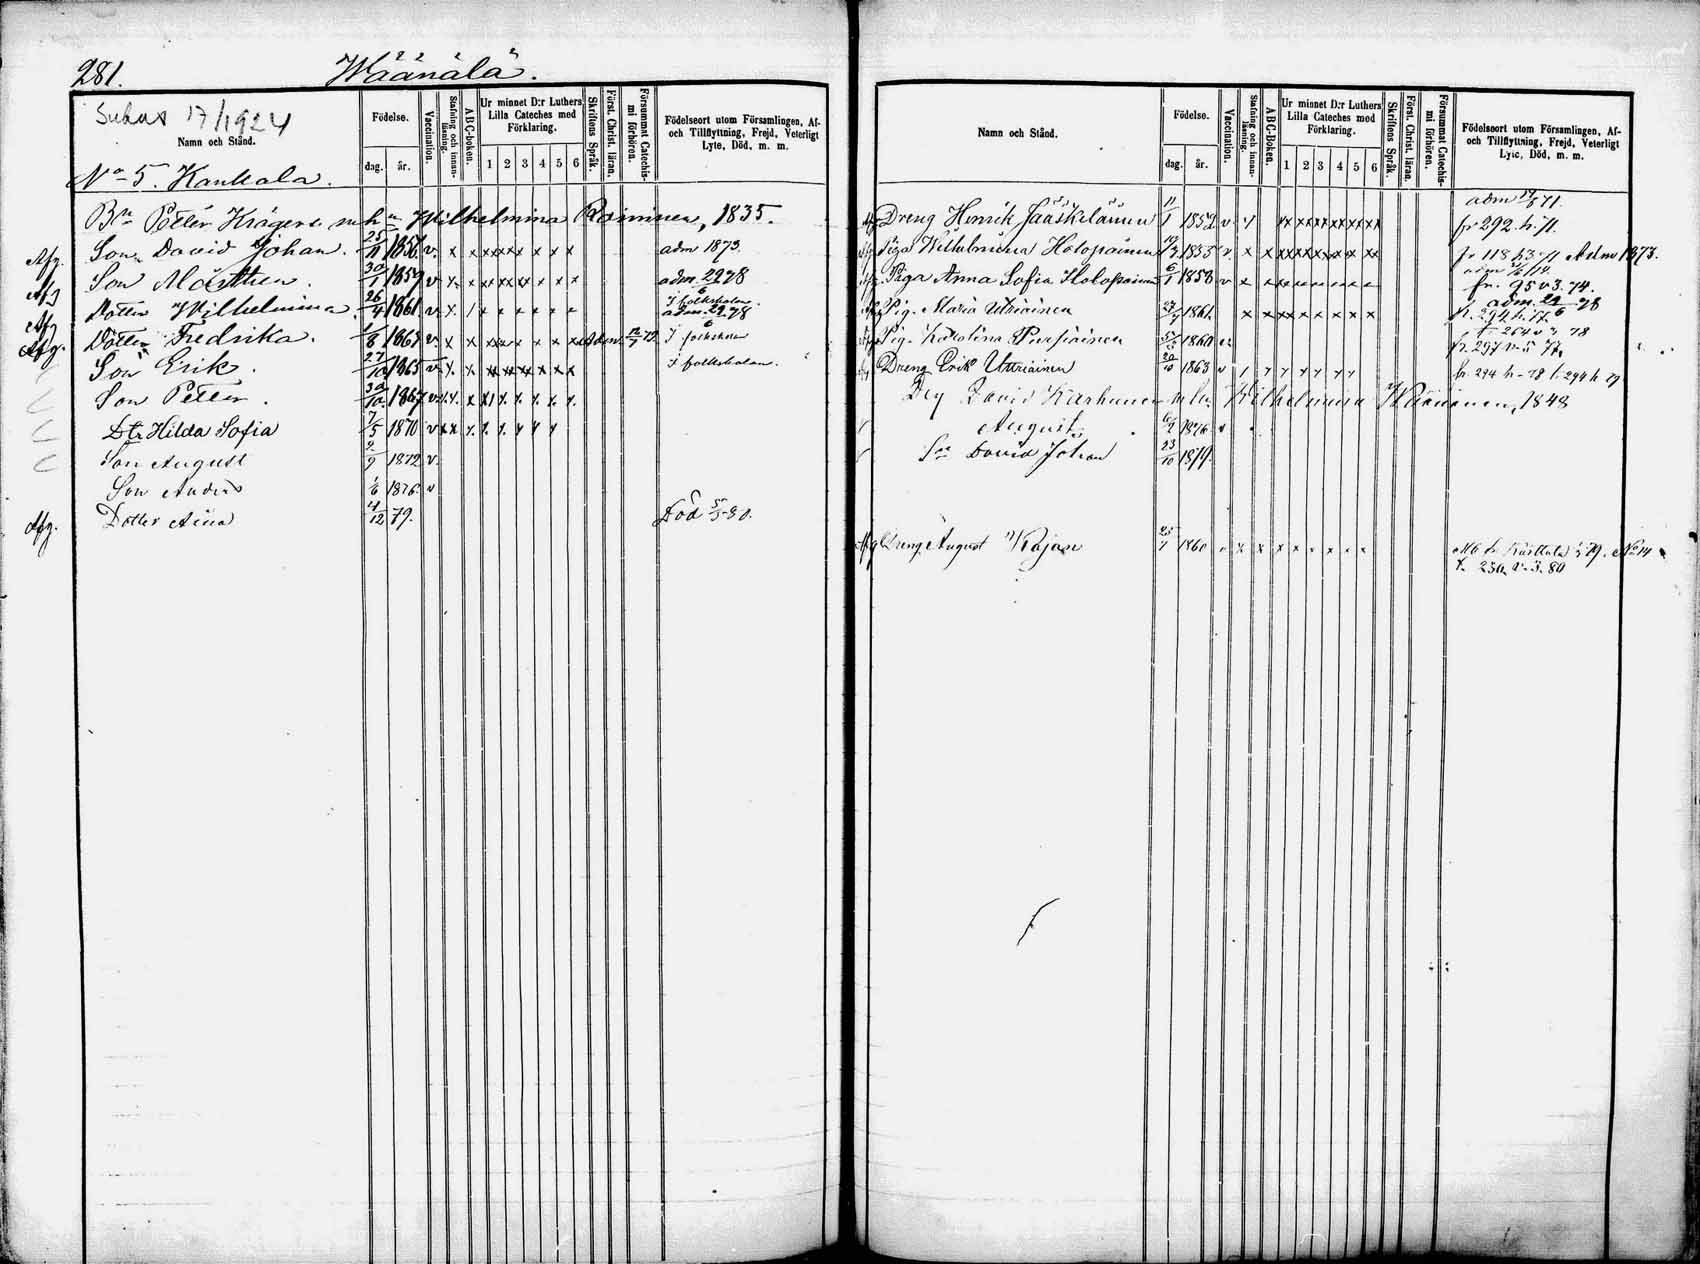 281. Wäänälä.
Sukus 17/1924
Namn och Stånd.
Födelse.
dag. år.
Vaccination.
Stafning och innanläsning.
A-B-C-boken.
Ur minnet D:r Luthers Lilla Cateches med Förklaring.
1 2 3 4 5 6
Skriftens Språk.
Först. Christ. läran.
Försummat Catechismi förhören.
Födelseort utom Församlingen, Af- och Tillflyttning, Frejd, Veterligt Lyte, Död, m. m.
No 5. Kankala.
Bn Petter Kröger m h Wilhelmina Roininen, 1835.
Afg. Son David Johan. 25/11 1856. v. x x x x x x x x adm 1873.
Afg Son Mårthen. 30/1 1859 v. x x x x x x x adm. 29/6 78
Afg Dotter Wilhelmina 26/4 1861 v. x / x x x x x x I folkskolan. adm. 29/6 78
Afg. Dotter Fredrika. 1863 v. x x x x x x x x Adm. 79 I folkskolan
Son Erik. 27/10 1865 v. x x x x x x x x I folkskolan.
Son Petter. 30/10 1867 v. x x x x x x x x
Dtr Hilda Sofia 7/5 1870 v x x x x x x x
Son August 2/9 1872 v.
Son Anders 1/6 1876. v
Afg. Dotter Aina 4/12 79. Död 5/3-80.
Namn och Stånd.
Födelse.
dag. år.
Vaccination.
Stafning och innanläsning.
A-B-C-boken.
Ur minnet D:r Luthers Lilla Cateches med Förklaring.
1 2 3 4 5 6
Skriftens Språk.
Först. Christ. läran.
Försummat Catechismi förhören.
Födelseort utom Församlingen, Af- och Tillflyttning, Frejd, Veterligt Lyte, Död, m. m.
Afg Dreng Henrik Jääskeläinen 11/1 1852 v x x x x x x x fr 292. h. 71.
Piga Wilhelmina Holopainen 1855 v. x x x x x x x x fr 118 h 3. 71 Adm 1873.
Piga Anna Sofia Holopainen 6/1 1858 v x x x x x x x fr. 95 v 3. 74.
adm. 29/6 78
Pig. Maria Utriainen 27/7 1861. x x x x x x x x fr. 294 h. 77
Pig. Karolina Parsiainen 1860 fr. 297 v. 5 77
Dreng Erik Utriainen 20/10 1863 v fr. 294 h - 78 t. 294 h 79
David Karhunen m hu. Wilhelmina Väänänen, 1848
August 6/2 1876 v
Son David Johan 23/10 1879.
Afg Dreng August Kajan 25/7 1860 x x x x x x x No 14
t. 250 v. 3. 80